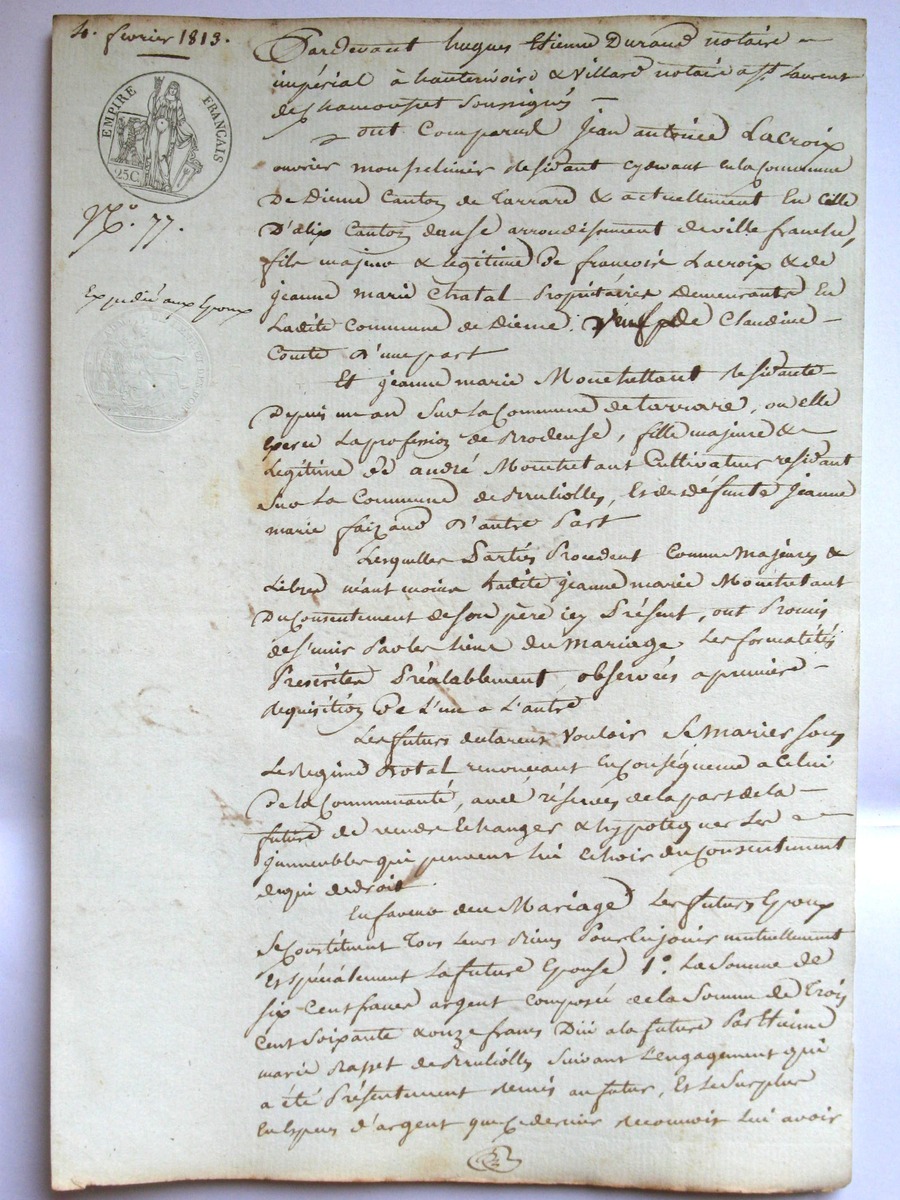 4. fevrier 1813.
EMPIRE FRANÇAIS
25C.
N.° 77.
Expedié aux Epoux
Pardevant hugues Etienne Durand notaire
impérial à hauterivoire & Villard notaire a St Laurent
de chamousset Soussignés
ont Comparus Jean antoine Lacroix
ouvrier mousselinier residant cydevant en la Commune
De Dieme Canton de Tarrare & actuellement En Celle
D'alix Canton danse arrondissement de ville franche,
fils majeur & legitime De francois Lacroix & de
jeanne marie Chatal Propriétaires Demeurants En
Ladite Commune de Dieme. Veuf de Claudine
Comte D'une part
Et jeanne marie Montrettant residante
Depuis un an Sur La Commune de tarrare, ou elle
Exerce La profession de Brodeuse, fille majeure &
Legitime de andré Montretant Cultivateur residant
Sur La Commune de Brulliolles, Et de defunte Jeanne
marie faizand D'autre Part
Lesquelles Parties Procedent Comme Majeures &
Libres néant moins Ladite jeanne marie Montretant
Du Consentement de Son père icy Présent, ont Promis
de S'unir Par les liens du Mariage Les formalités
Prescrites Préalablement observées a premiere
requisition De L'un a L'autre
Les futurs declarent Vouloir Se Marier Sous
Le Regime Dotal renoncant En Conséquence a Celui
De la Communauté, avec réserves de la part de la
future de vendre Echanger & hypotequer Les
immeubles qui peuvent lui Echoir du Consentement
de qui de droit
En faveur du Mariage Les futurs Epoux
Se Constituent Tous Leurs Biens Pour En jouir mutuellement
Et Spécialement La future Epouse 1.° La Somme de
Six Cent francs argent composée de la Somme de Trois
Cent Soixante & onze francs Dûe a la future Par Etienne
marie Rasset de Brulliolles Suivant L'engagement qui
a été Présentement remis au futur, Et Le Surplus
En Especes d'argent que Ce dernier reconnoit Lui avoir